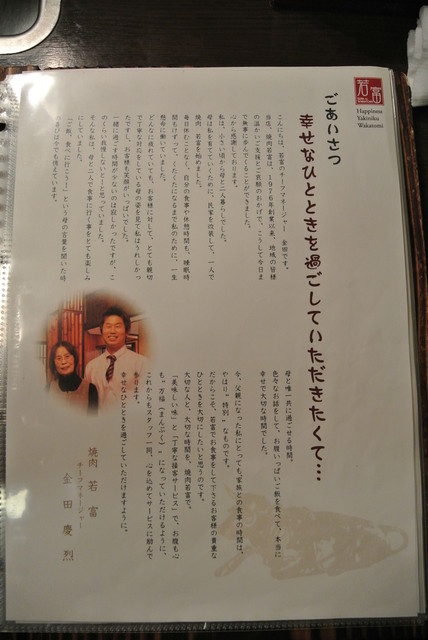 若富
Happiness
Yakiniku
Wakatomi
ごあいさつ
幸せなひとときを過ごしていただきたくて…
こんにちは、若富のチーフマネージャー 金田です。
当店、焼肉若富は、1976年創業以来、地域の皆様
の温かいご支援とご愛顧のおかげで、こうして今日ま
で無事に歩んでくることができました。
心から感謝しております。
私は、小さい頃から母と二人暮らしでした。
母は私を育てていくために、民家を改装して、一人で
焼肉 若富を始めました。
毎日休むことなく、自分の食事や休憩時間も、睡眠時
間もけずって、くたくたになるまで私のために、一生
懸命に働いていました。
どんなに疲れていても、お客様に対して、とても親切
で丁寧な対応をしている母の姿を見て私はうれしかっ
たですし、お客様も笑顔がいっぱいでした。
一緒に過ごす時間が少ないのは寂しかったですが、こ
のくらい我慢しないと！と思っていました。
そんな私は、母と二人で食事に行く事をとても楽しみ
にしていました。
「ご飯、食べに行こう！」という母の言葉を聞いた時
の喜びは今でも覚えています。
母と唯一共に過ごせる時間。
色々なお話をして、お腹いっぱいご飯を食べて、本当に
幸せで大切な時間でした。
今、父親になった私にとっても、家族との食事の時間は、
やはり“特別”なものです。
だからこそ、若富でお食事をして下さるお客様の貴重な
ひとときを大切にしたいと思うのです。
大切な人と、大切な時間を、焼肉若富で。
「美味しい味」と「丁寧な接客サービス」で、お腹も心
も“万福（まんぷく）”になっていただけるように、
これからもスタッフ一同、心を込めてサービスに励んで
参ります。
幸せなひとときを過ごしていただけますように。
焼肉 若富
チーフマネージャー
金田 慶烈